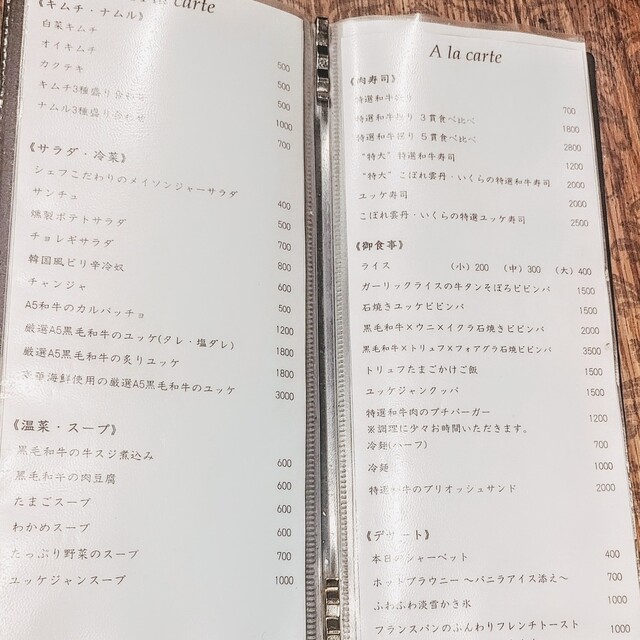 carte
《キムチ・ナムル》
白菜キムチ 500
オイキムチ 500
カクテキ 500
キムチ3種盛り合わせ 1000
ナムル3種盛り合わせ 700
《サラダ・冷菜》
シェフこだわりのメイソンジャーサラダ
サンチュ 400
燻製ポテトサラダ 500
チョレギサラダ 700
韓国風ピリ辛冷奴 800
チャンジャ 600
A5和牛のカルパッチョ 500
厳選A5黒毛和牛のユッケ(タレ・塩ダレ) 1200
厳選A5黒毛和牛の炙りユッケ 1800
豪華海鮮使用の厳選A5黒毛和牛のユッケ 1800
3000
《温菜・スープ》
黒毛和牛の牛スジ煮込み 600
黒毛和牛の肉豆腐 600
たまごスープ 600
わかめスープ 600
たっぷり野菜のスープ 700
ユッケジャンスープ 1000
A la carte
《肉寿司》
特選和牛握り 700
特選和牛握り 3貫食べ比べ 1800
特選和牛握り 5貫食べ比べ 2800
"特大"特選和牛寿司 1200
"特大"こぼれ雲丹・いくらの特選和牛寿司 2000
ユッケ寿司 2000
こぼれ雲丹・いくらの特選ユッケ寿司 2500
《御食事》
ライス (小)200 (中)300 (大)400
ガーリックライスの牛タンそぼろビビンバ 1500
石焼きユッケビビンバ 1500
黒毛和牛×ウニ×イクラ石焼ビビンバ 2000
黒毛和牛×トリュフ×フォアグラ石焼ビビンバ 3500
トリュフたまごかけご飯 1500
ユッケジャンクッパ 1500
特選和牛肉のプチバーガー 1200
※調理に少々お時間いただきます。
冷麺(ハーフ) 700
冷麺 1000
特選和牛のブリオッシュサンド 2000
《デザート》
本日のシャーベット 400
ホットブラウニー ～バニラアイス添え～ 700
ふわふわ淡雪かき氷 1000
フランスパンのふんわりフレンチトースト 1000